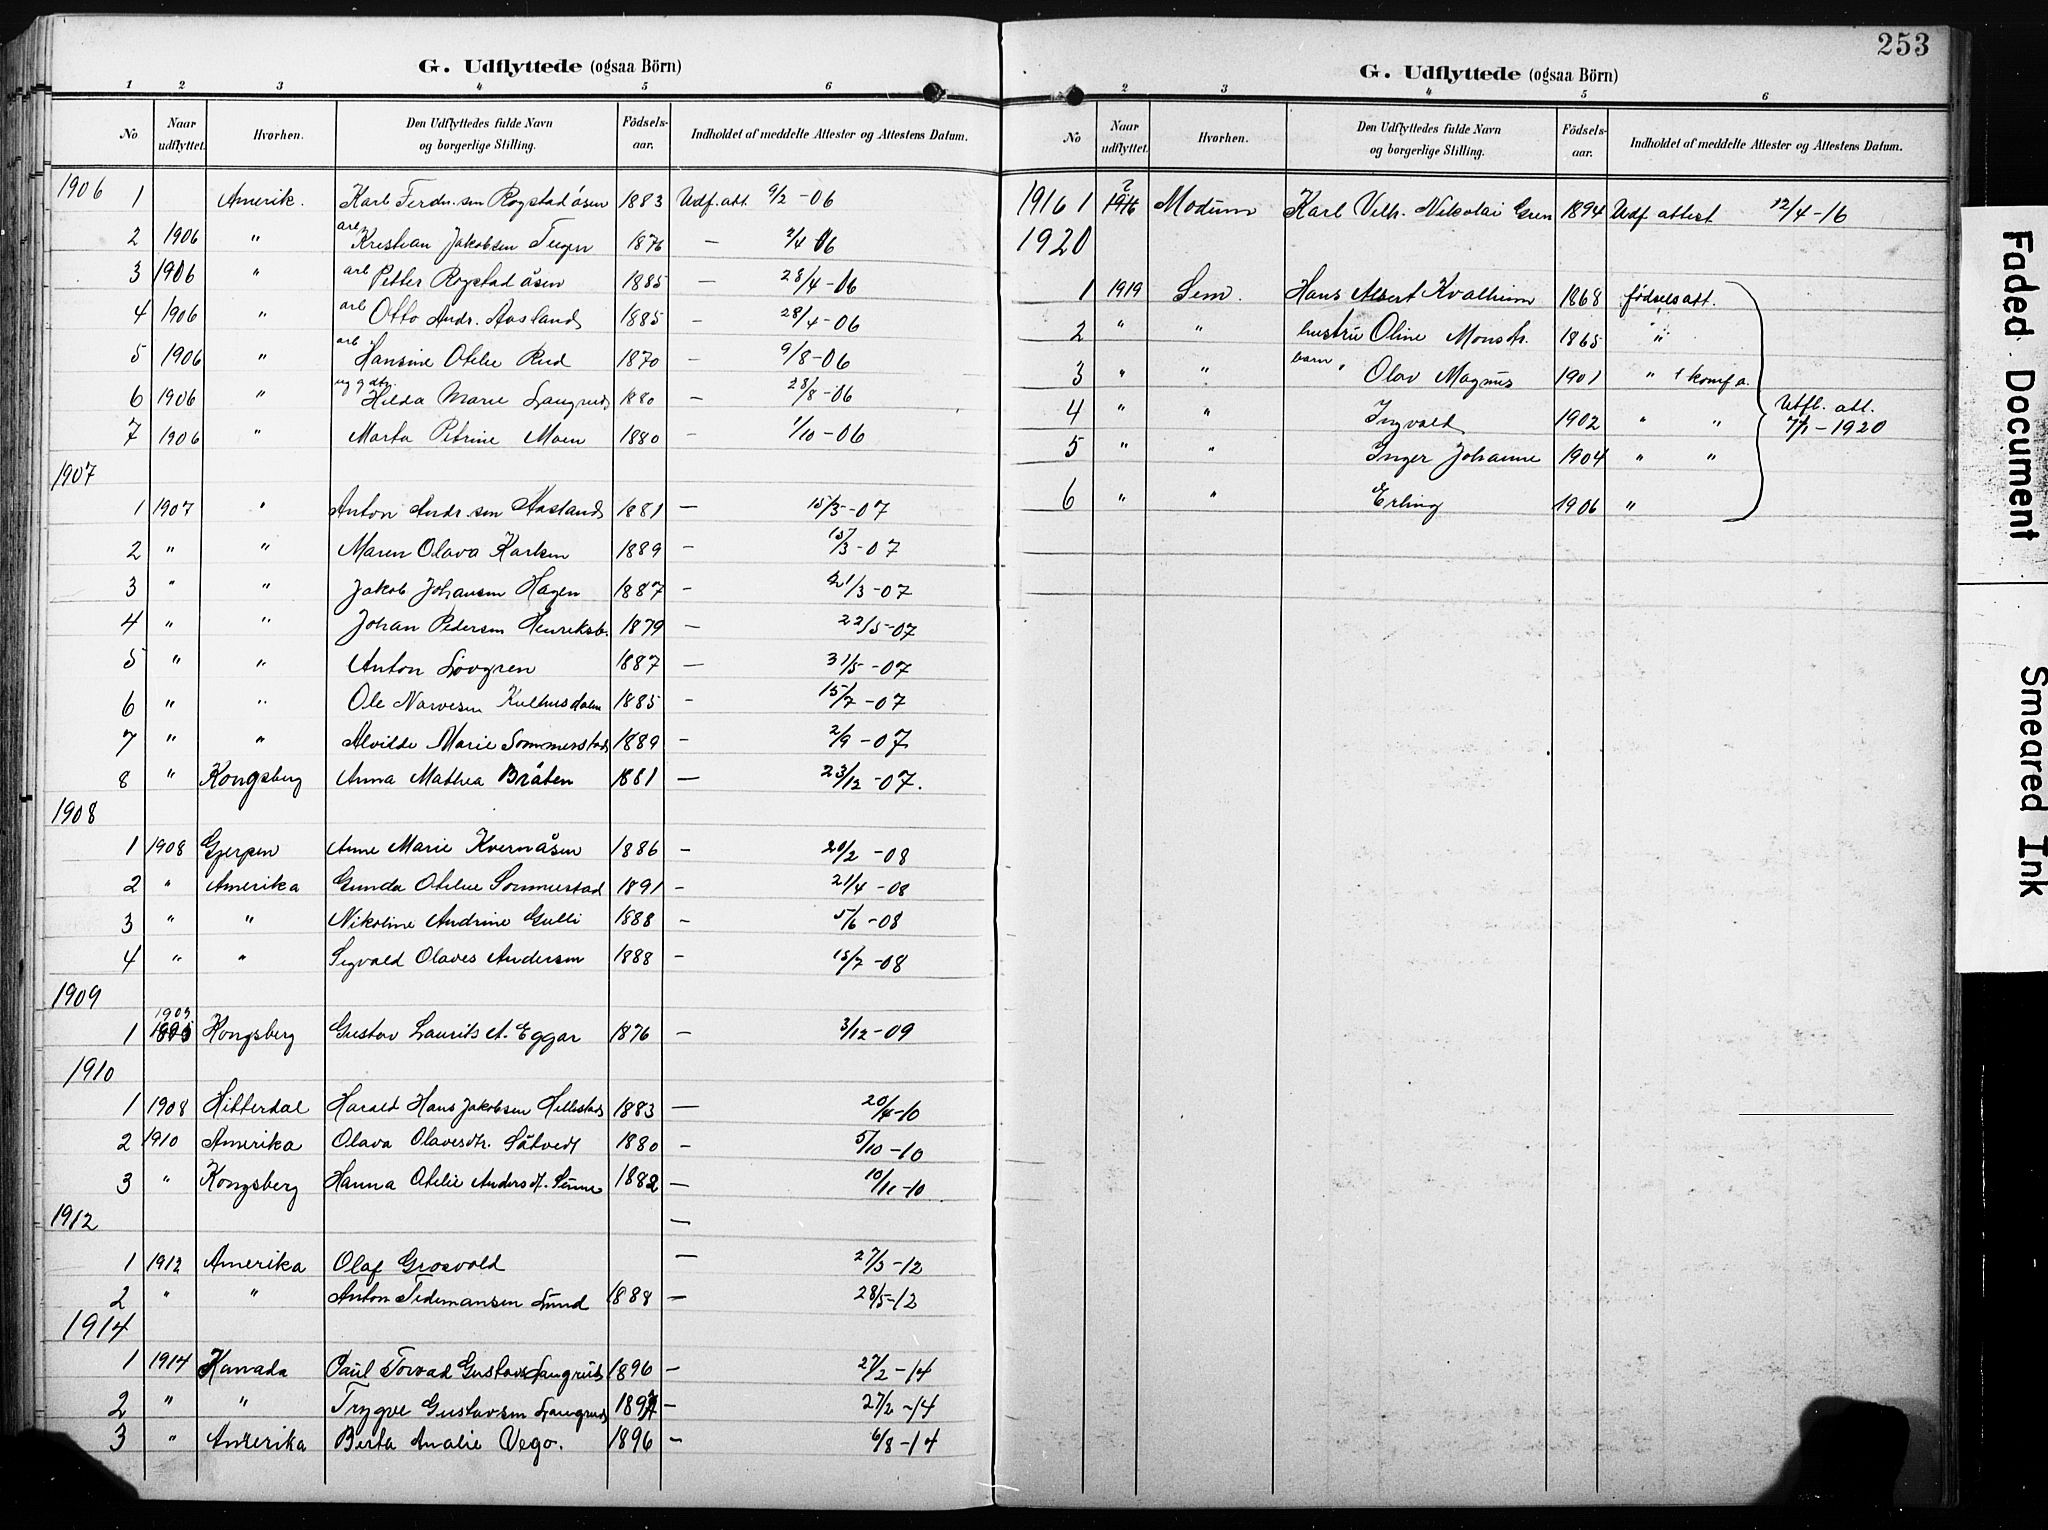 G. Udflyttede (ogsaa Börn)
1 2 3 4 5 6
No Naar udflyttet. Hvorhen. Den Udflyttedes fulde Navn og borgerlige Stilling. Fødsels-aar. Indholdet af meddelte Attester og Attestens Datum.
1906 1 Amerik. Karl Ferdn.sen Rogstadåsen 1883 Udf. att. 9/2 - 06
2 1906 " arb Kristian Jakobsen 1876 — 2/4 06
3 1906 " arb Petter Rogstadåsen 1885 — 28/4 - 06
4 1906 " arb Otto Andr. Aasland 1885 — 28/4 - 06
5 1906 " arb Hansine Otilie Rud 1870 — 9/8 - 06
6 1906 " Hilda Marie Langrud 1880 — 28/8 - 06
7 1906 " Marta Petrine Moen 1880 — 1/10 - 06
1907
1 1907 " Anton Andr.sen Aasland 1881 — 15/3 - 07
2 " " Maren Olava Karlsen 1889 — 15/3 - 07
3 " " Jakob Johansen Hagen 1887 — 21/3 - 07
4 " " Johan Pedersen Henriksb. 1879 — 22/5 - 07
5 " " Anton Lövgren 1887 — 31/5 - 07
6 " " Ole Narvesen Kulhusdalen 1885 — 15/7 - 07
7 " " Alvilde Marie Sommerstad 1889 — 2/9 - 07
8 " Kongsberg Anna Mathea Bråten 1881 — 23/12 - 07.
1908
1 1908 Gjerpen Anne Marie Kvernåsen 1886 — 20/2 - 08
2 " Amerika Gunda Otilie Sommerstad 1891 — 21/4 - 08
3 " " Nikoline Andrine Gulli 1888 — 5/6 - 08
4 " " Sigvald Olaves Andersen 1888 — 15/7 - 08
1909
1 1909 Kongsberg Gustav Laurits A. Eggar 1876 — 3/12 - 09
1910
1 1908 Hitterdal Harald Hans Jakobsen Hillestad 1883 — 20/4 - 10
2 1910 Amerika Olava Olavesdtr. Såtvedt 1880 — 5/10 - 10
3 " Kongsberg Hanna Otelie Andersdt. 1882 — 10/11 - 10
1912 —
1 1912 Amerika Olaf Grosvold — 27/3 - 12
2 " " Anton Tidemansen Lund 1888 — 28/5 - 12
1914
1 1914 Kanada Paul Torvad Gustavs. Langrud 1896 — 27/2 - 14
2 " " Trygve Gustavsen Langrud 1897 — 27/2 - 14
3 " Amerika Berta Analie Vego. 1896 — 6/8 - 14
253
G. Udflyttede (ogsaa Börn)
2 3 4 5 6
No Naar udflyttet. Hvorhen. Den Udflyttedes fulde Navn og borgerlige Stilling. Fødsels-aar. Indholdet af meddelte Attester og Attestens Datum.
1916 1 ? 1916 Modum Karl Vilh. Nikolai Gren 1894 Udf attest 12/4 - 16
1920
1 1919 Sem. Hans Albert Kvalheim 1868 fødselsatt.
2 " " hustru Oline Monsdtr. 1865 "
3 " " barn " Olav Magnus 1901 " & konf a.
4 " " Ingvald 1902 " " Utfl. att. 7/1 - 1920
5 " " Inger Johanne 1904 " "
6 " " Erling 1906 "
Faded Document
Smeared Ink